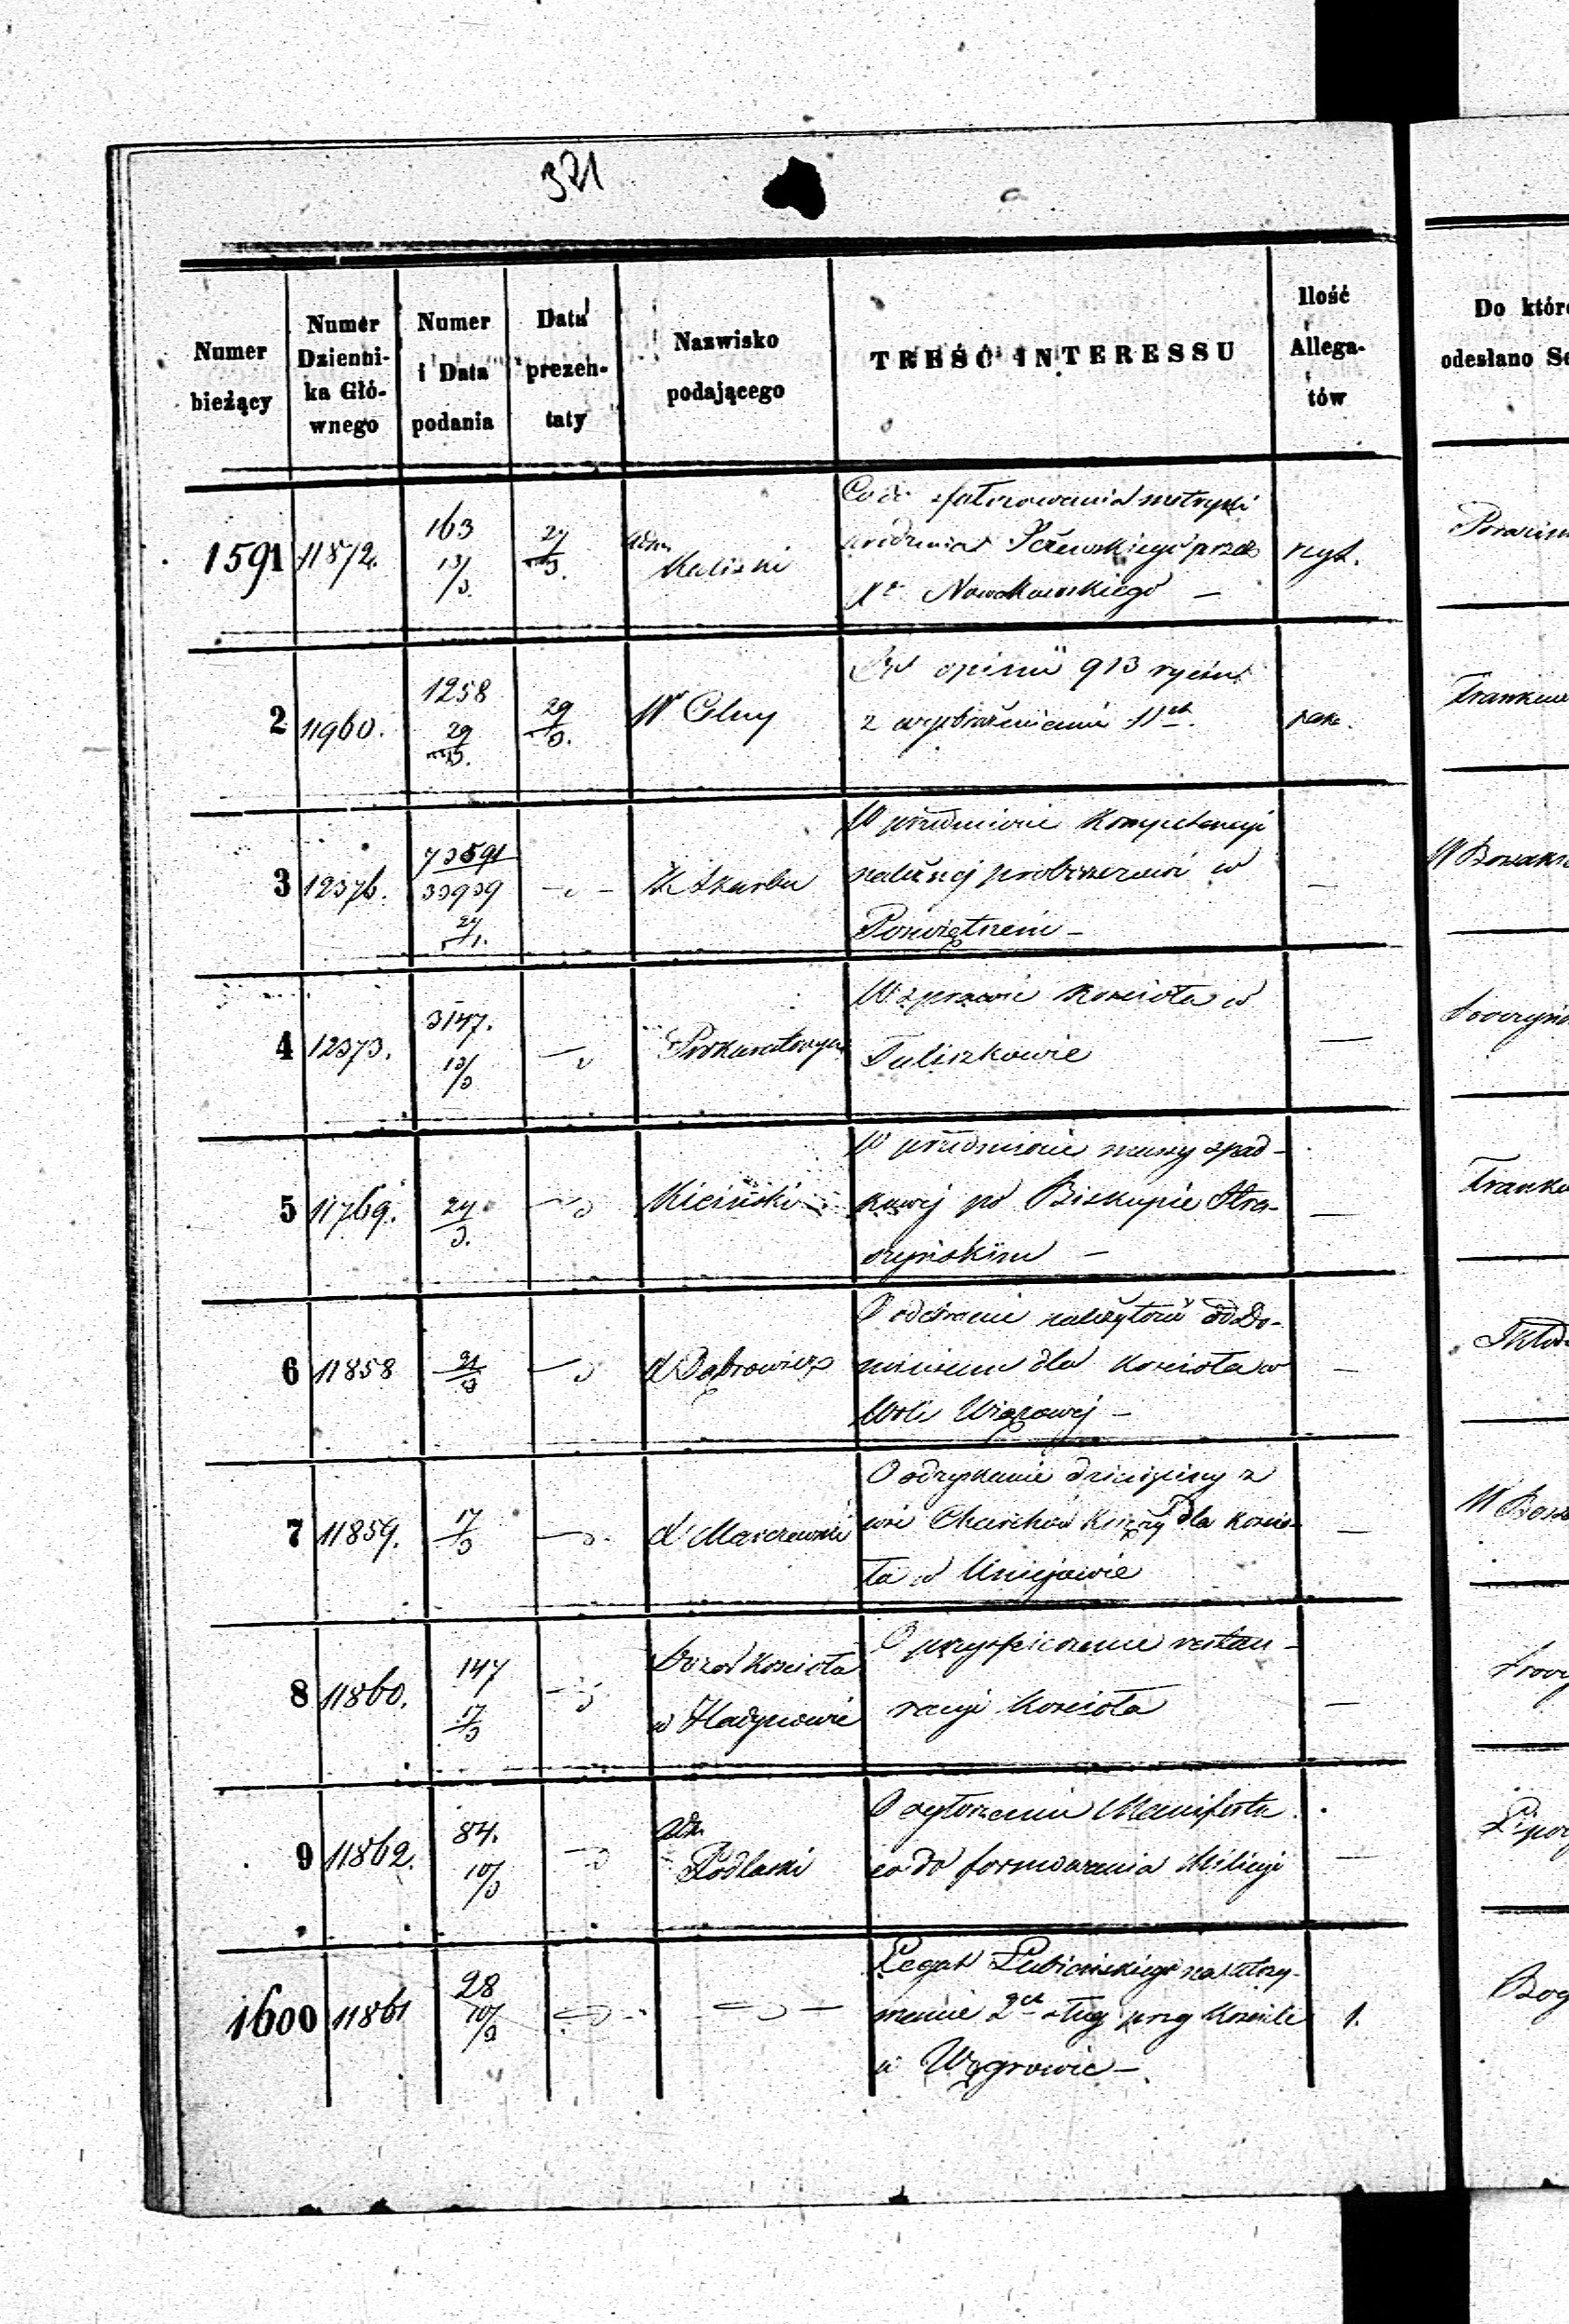 321
Numer bieżący
Numer Dzienni- ka Głó- wnego
Numer i Data podania
Data prezen- taty
Nazwisko podającego
TREŚĆ INTERESSU
Ilość Allega- tów
Do któr
odesłano Se
1591 11872. 163 13/3. 27/3. Adm. Kaliski
Co do sfałszowania metryki
urodzenia przez
Xa Nowakowskiego —
2 11960. 1258 29/3. 29/3. W Celny
opinii 913 rycin
z wyobrażeniami
3 12376. 73591 33939 27/1. K Skarbu —
W przedmiocie kompetencyi
należnej proboszczowi w
Poświętnem —
4 12373. 3147. 13/3 Prokuratorya —
W sprawie kościoła w
Tuliszkowie
5 11769. 24/3. Kiciński —
W przedmiocie massy spad-
kowej po Biskupie Stra-
szyńskim —
6 11858 21/3 X Dąbrowicz —
O odebranie należytości od Do-
minium dla kościoła w
Woli Wiązowej —
7 11859. 17/3 X Marczewski —
O odzyskanie dziesięciny z
wsi Charchów Księży dla kościo-
ła w Uniejowie
8 11860. 147 17/3 Dozór Kościoła
w Hadynowie —
O przyspieszenie restau-
racyi Kościoła
9 11862. 84. 10/3 Adm. Podlaski —
O ogłoszeniu Manifestu
co do formowania Milicyi
1600 11861 28 10/3 — 1.
Legat Łubieńskiego na utrzy-
manie 2ch sług przy Kościele
w Węgrowie —